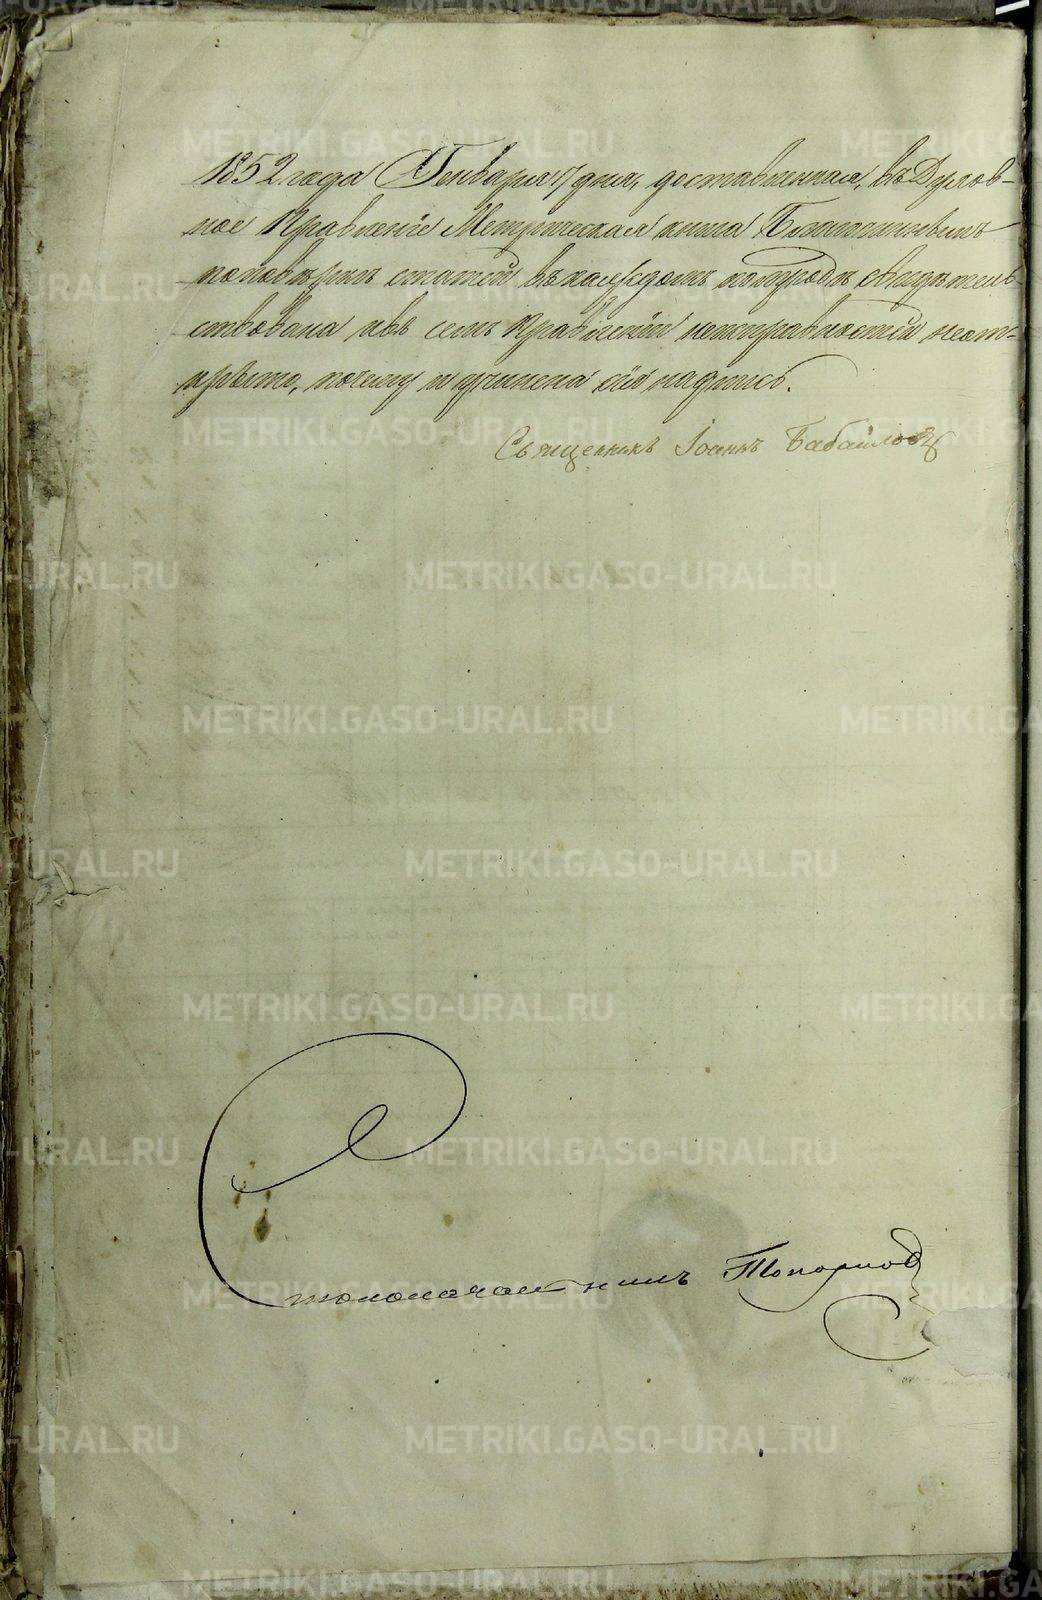 1852 года Генваря 7 дня, доставленная, въ Духов-
ное Правленіе Метрическая книга Благочиннымъ
по повѣркѣ статей въ каждомъ приходѣ свидѣтель-
ствована и въ семъ Правленіи неисправностей неот-
крыто, почему и учинена сія надпись.
Священникъ Іоаннъ Бабайловъ
Столоначальникъ Топорковъ
METRIKI.GASO-URAL.RU